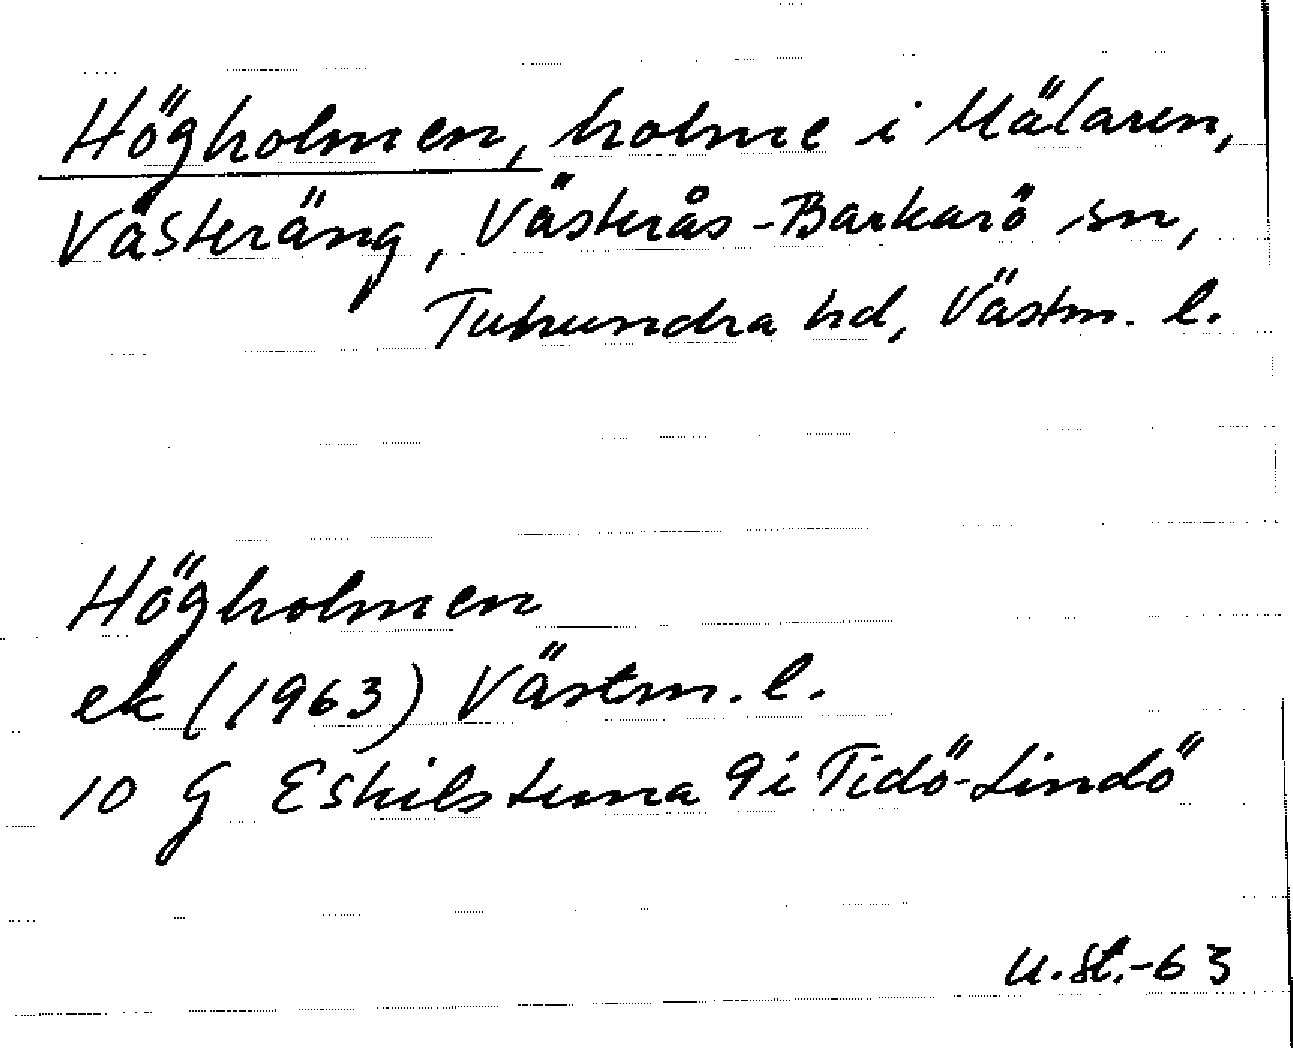 Högholmen, holme i Mälaren,
Västeräng, Västerås-Barkarö sn,
Tuhundra hd, Västm. l.
Högholmen
ek (1963) Västm. l.
10 G Eskilstuna 9i Tidö-Lindö
U.St.-63